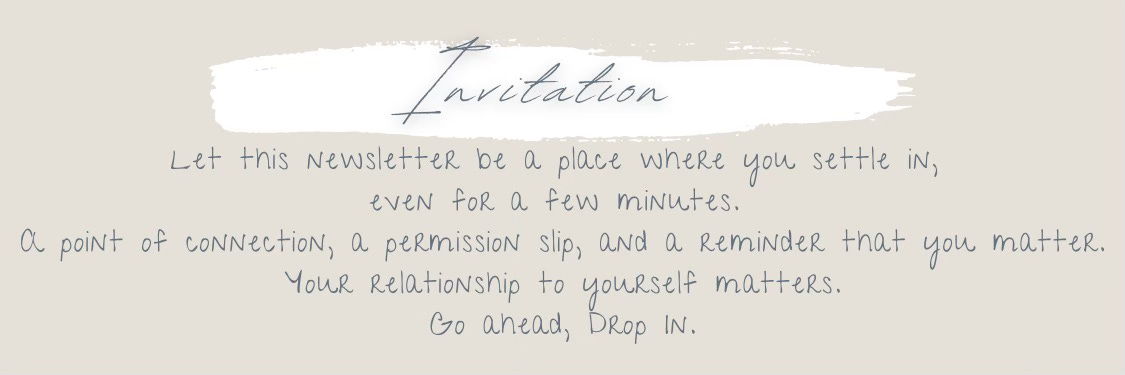 Invitation
Let this newsletter be a place where you settle in,
even for a few minutes.
A point of connection, a permission slip, and a reminder that you matter.
Your relationship to yourself matters.
Go ahead, Drop IN.